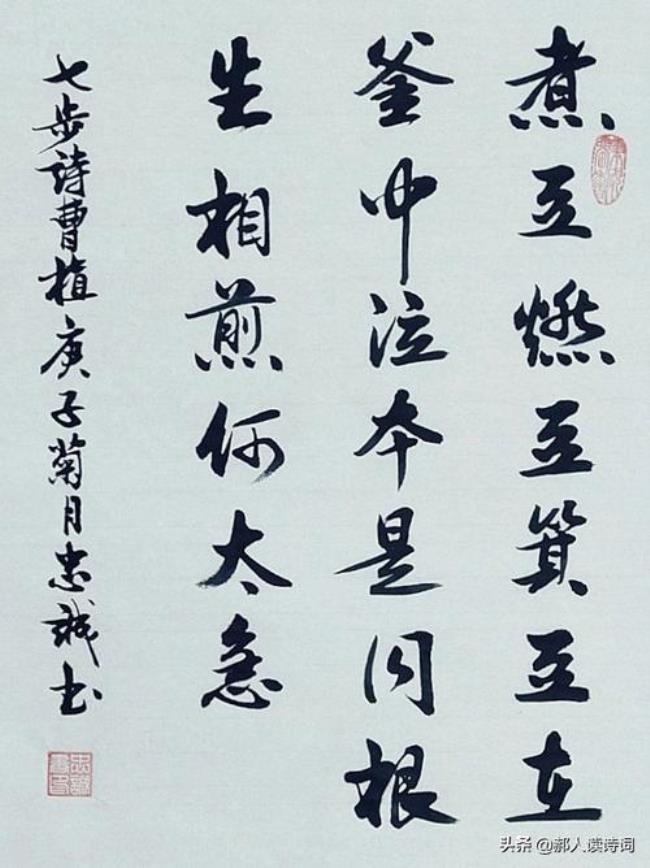 煮豆燃豆箕豆在
釜中泣本是同根
生相煎何太急
七步詩曹植庚子菊月忠誠书
头条 @郝人读诗词